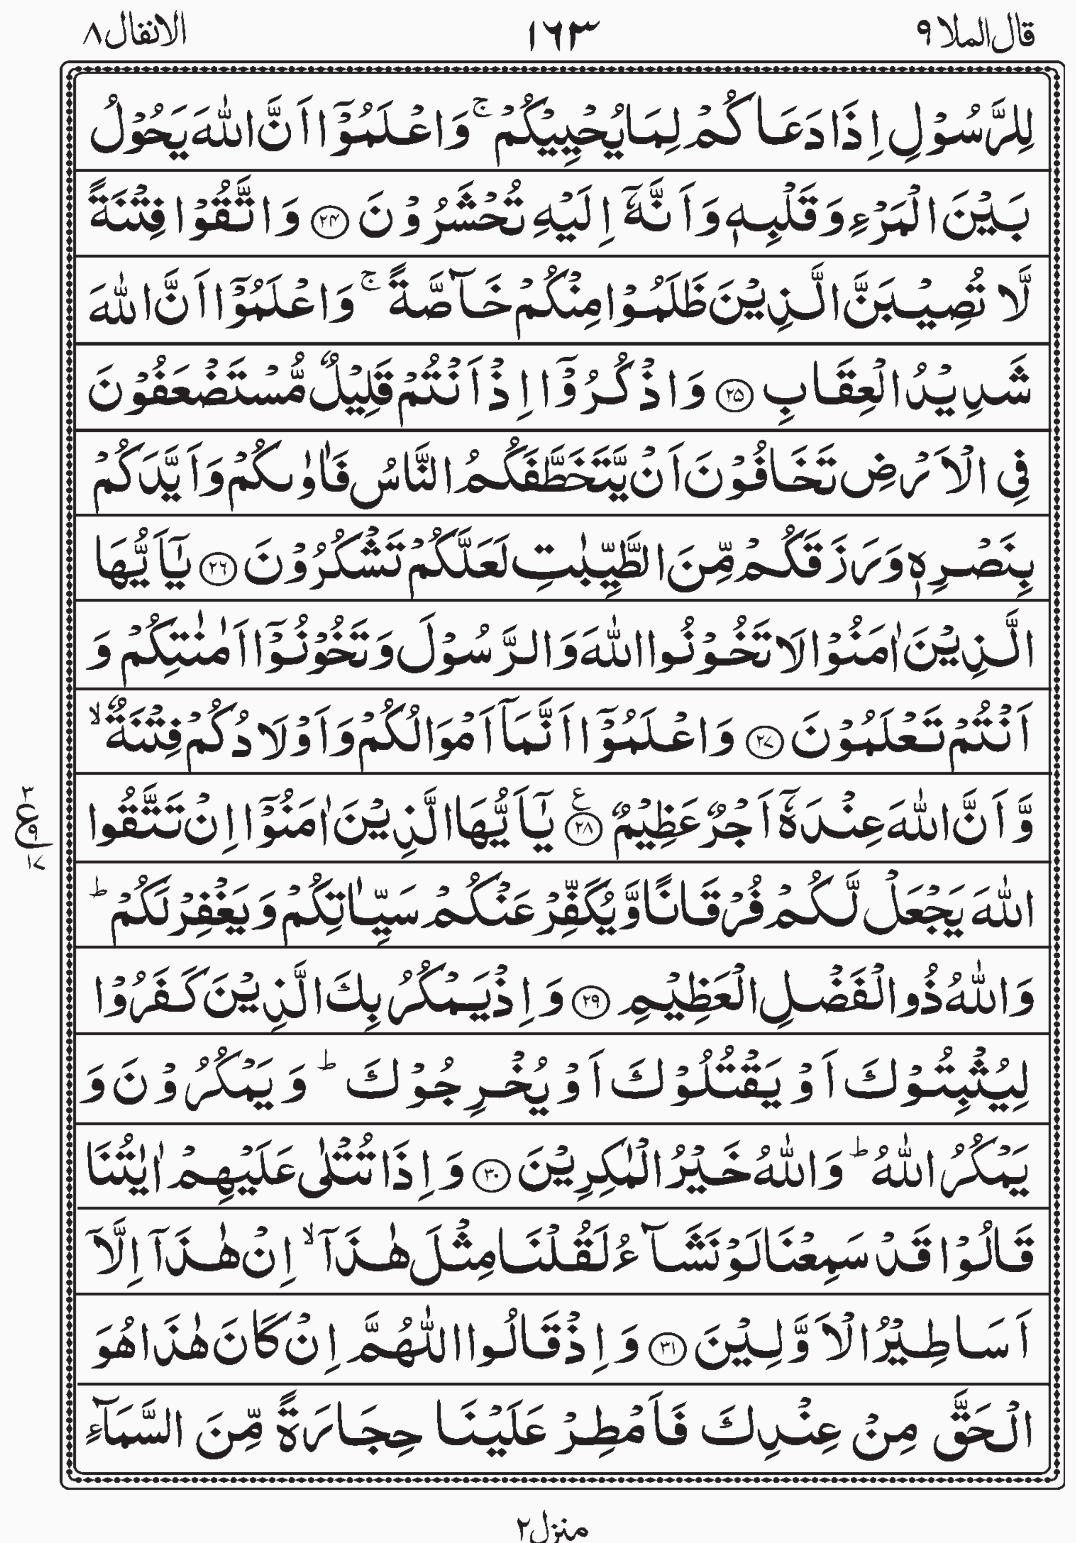 قال الملا ٩ ١٦٣ الانفال ٨
لِلرَّسُوْلِ اِذَا دَعَاكُمْ لِمَا يُحْيِيْكُمْ ۚ وَاعْلَمُوْۤا اَنَّ اللّٰهَ يَحُوْلُ
بَيْنَ الْمَرْءِ وَقَلْبِهٖ وَاَنَّهٗۤ اِلَيْهِ تُحْشَرُوْنَ ﴿۲۴﴾ وَاتَّقُوْا فِتْنَةً
لَّا تُصِيْبَنَّ الَّذِيْنَ ظَلَمُوْا مِنْكُمْ خَآصَّةً ۚ وَاعْلَمُوْۤا اَنَّ اللّٰهَ
شَدِيْدُ الْعِقَابِ ﴿۲۵﴾ وَاذْكُرُوْۤا اِذْ اَنْتُمْ قَلِيْلٌ مُّسْتَضْعَفُوْنَ
فِي الْاَرْضِ تَخَافُوْنَ اَنْ يَّتَخَطَّفَكُمُ النَّاسُ فَاٰوٰىكُمْ وَاَيَّدَكُمْ
بِنَصْرِهٖ وَرَزَقَكُمْ مِّنَ الطَّيِّبٰتِ لَعَلَّكُمْ تَشْكُرُوْنَ ﴿۲۶﴾ يٰۤاَيُّهَا
الَّذِيْنَ اٰمَنُوْا لَا تَخُوْنُوا اللّٰهَ وَالرَّسُوْلَ وَتَخُوْنُوْۤا اَمٰنٰتِكُمْ وَ
اَنْتُمْ تَعْلَمُوْنَ ﴿۲۷﴾ وَاعْلَمُوْۤا اَنَّمَاۤ اَمْوَالُكُمْ وَاَوْلَادُكُمْ فِتْنَةٌ ۙ
وَّاَنَّ اللّٰهَ عِنْدَهٗۤ اَجْرٌ عَظِيْمٌ ﴿۲۸﴾ ع يٰۤاَيُّهَا الَّذِيْنَ اٰمَنُوْۤا اِنْ تَتَّقُوا
۳ ع ٩ ۱۷
اللّٰهَ يَجْعَلْ لَّكُمْ فُرْقَانًا وَّيُكَفِّرْ عَنْكُمْ سَيِّاٰتِكُمْ وَيَغْفِرْ لَكُمْ ؕ
وَاللّٰهُ ذُو الْفَضْلِ الْعَظِيْمِ ﴿۲۹﴾ وَاِذْ يَمْكُرُ بِكَ الَّذِيْنَ كَفَرُوْا
لِيُثْبِتُوْكَ اَوْ يَقْتُلُوْكَ اَوْ يُخْرِجُوْكَ ؕ وَيَمْكُرُوْنَ وَ
يَمْكُرُ اللّٰهُ ؕ وَاللّٰهُ خَيْرُ الْمٰكِرِيْنَ ﴿۳۰﴾ وَاِذَا تُتْلٰى عَلَيْهِمْ اٰيٰتُنَا
قَالُوْا قَدْ سَمِعْنَا لَوْ نَشَآءُ لَقُلْنَا مِثْلَ هٰذَاۤ ۙ اِنْ هٰذَاۤ اِلَّاۤ
اَسَاطِيْرُ الْاَوَّلِيْنَ ﴿۳۱﴾ وَاِذْ قَالُوا اللّٰهُمَّ اِنْ كَانَ هٰذَا هُوَ
الْحَقَّ مِنْ عِنْدِكَ فَاَمْطِرْ عَلَيْنَا حِجَارَةً مِّنَ السَّمَآءِ
منزل ۲